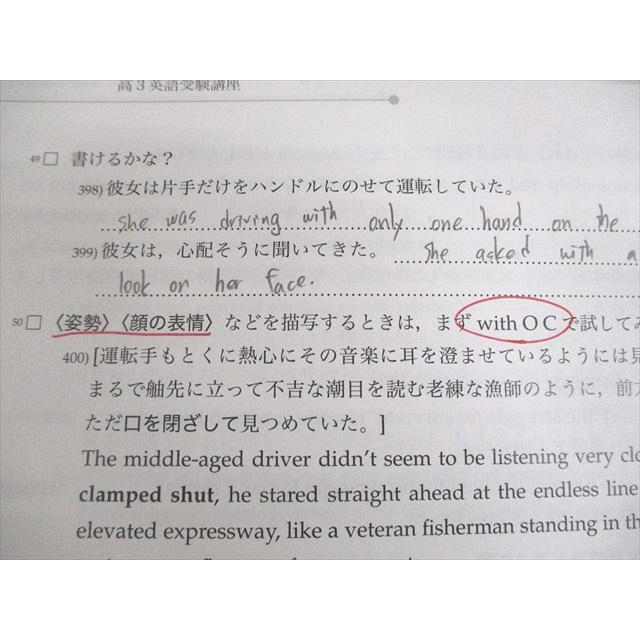 高3英語受験講座
49 □ 書けるかな？
398) 彼女は片手だけをハンドルにのせて運転していた。
she was driving with only one hand on the
399) 彼女は，心配そうに聞いてきた。 She asked with a
look on her face.
50 □ 〈姿勢〉〈顔の表情〉などを描写するときは，まず with O C で試してみ
400) [運転手もとくに熱心にその音楽に耳を澄ませているようには見
まるで舳先に立って不吉な潮目を読む老練な漁師のように，前方
ただ口を閉ざして見つめていた。]
The middle-aged driver didn't seem to be listening very clo
clamped shut, he stared straight ahead at the endless line
elevated expressway, like a veteran fisherman standing in th